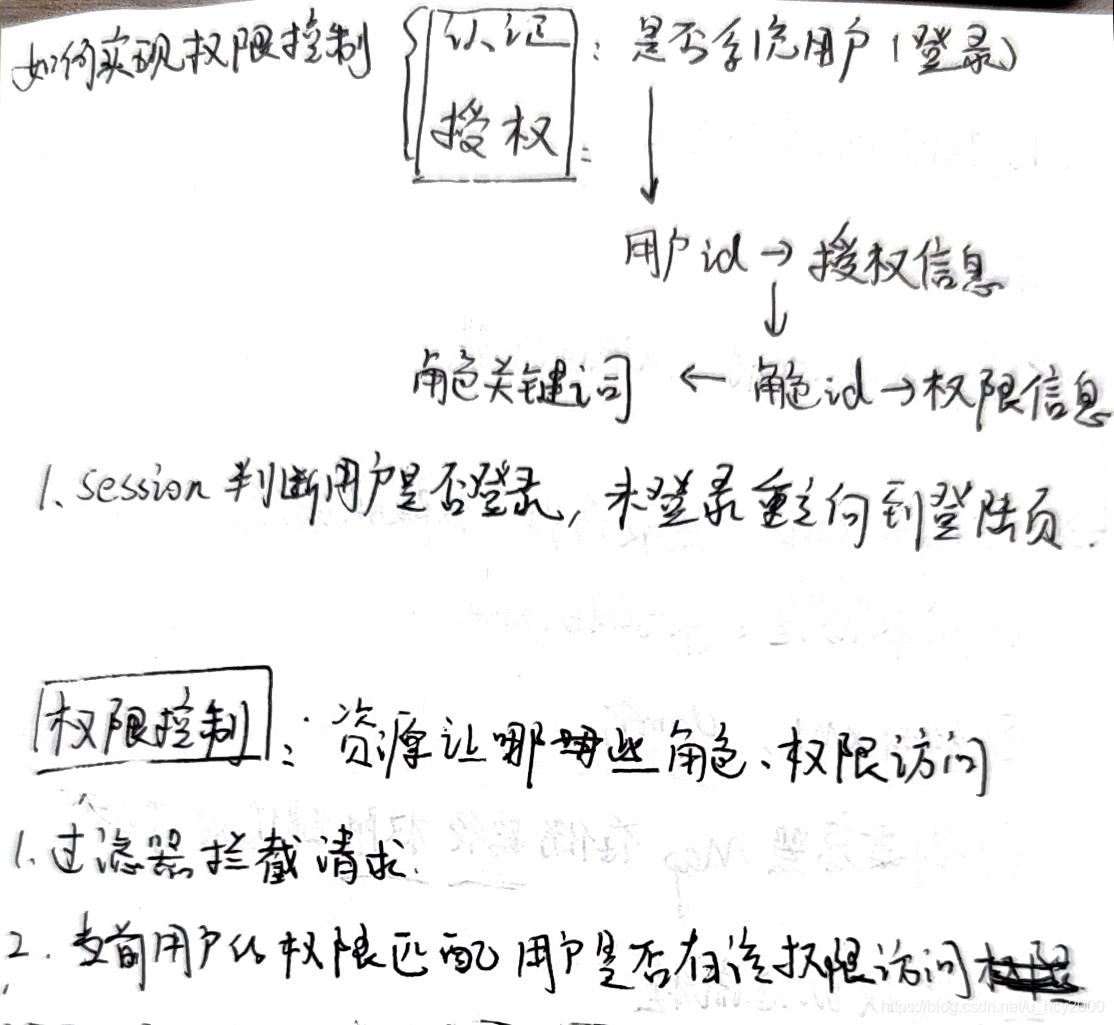 如何实现权限控制 { 认证 : 是否系统用户 (登录)
授权 :
用户id → 授权信息
角色关键词 ← 角色id → 权限信息
1. session 判断用户是否登录, 未登录重定向到登陆页.
权限控制 : 资源让哪些角色、权限访问
1. 过滤器拦截请求.
2. 当前用户的权限匹配 用户是否有该权限访问
https://blog.csdn.net/u_hcy2000